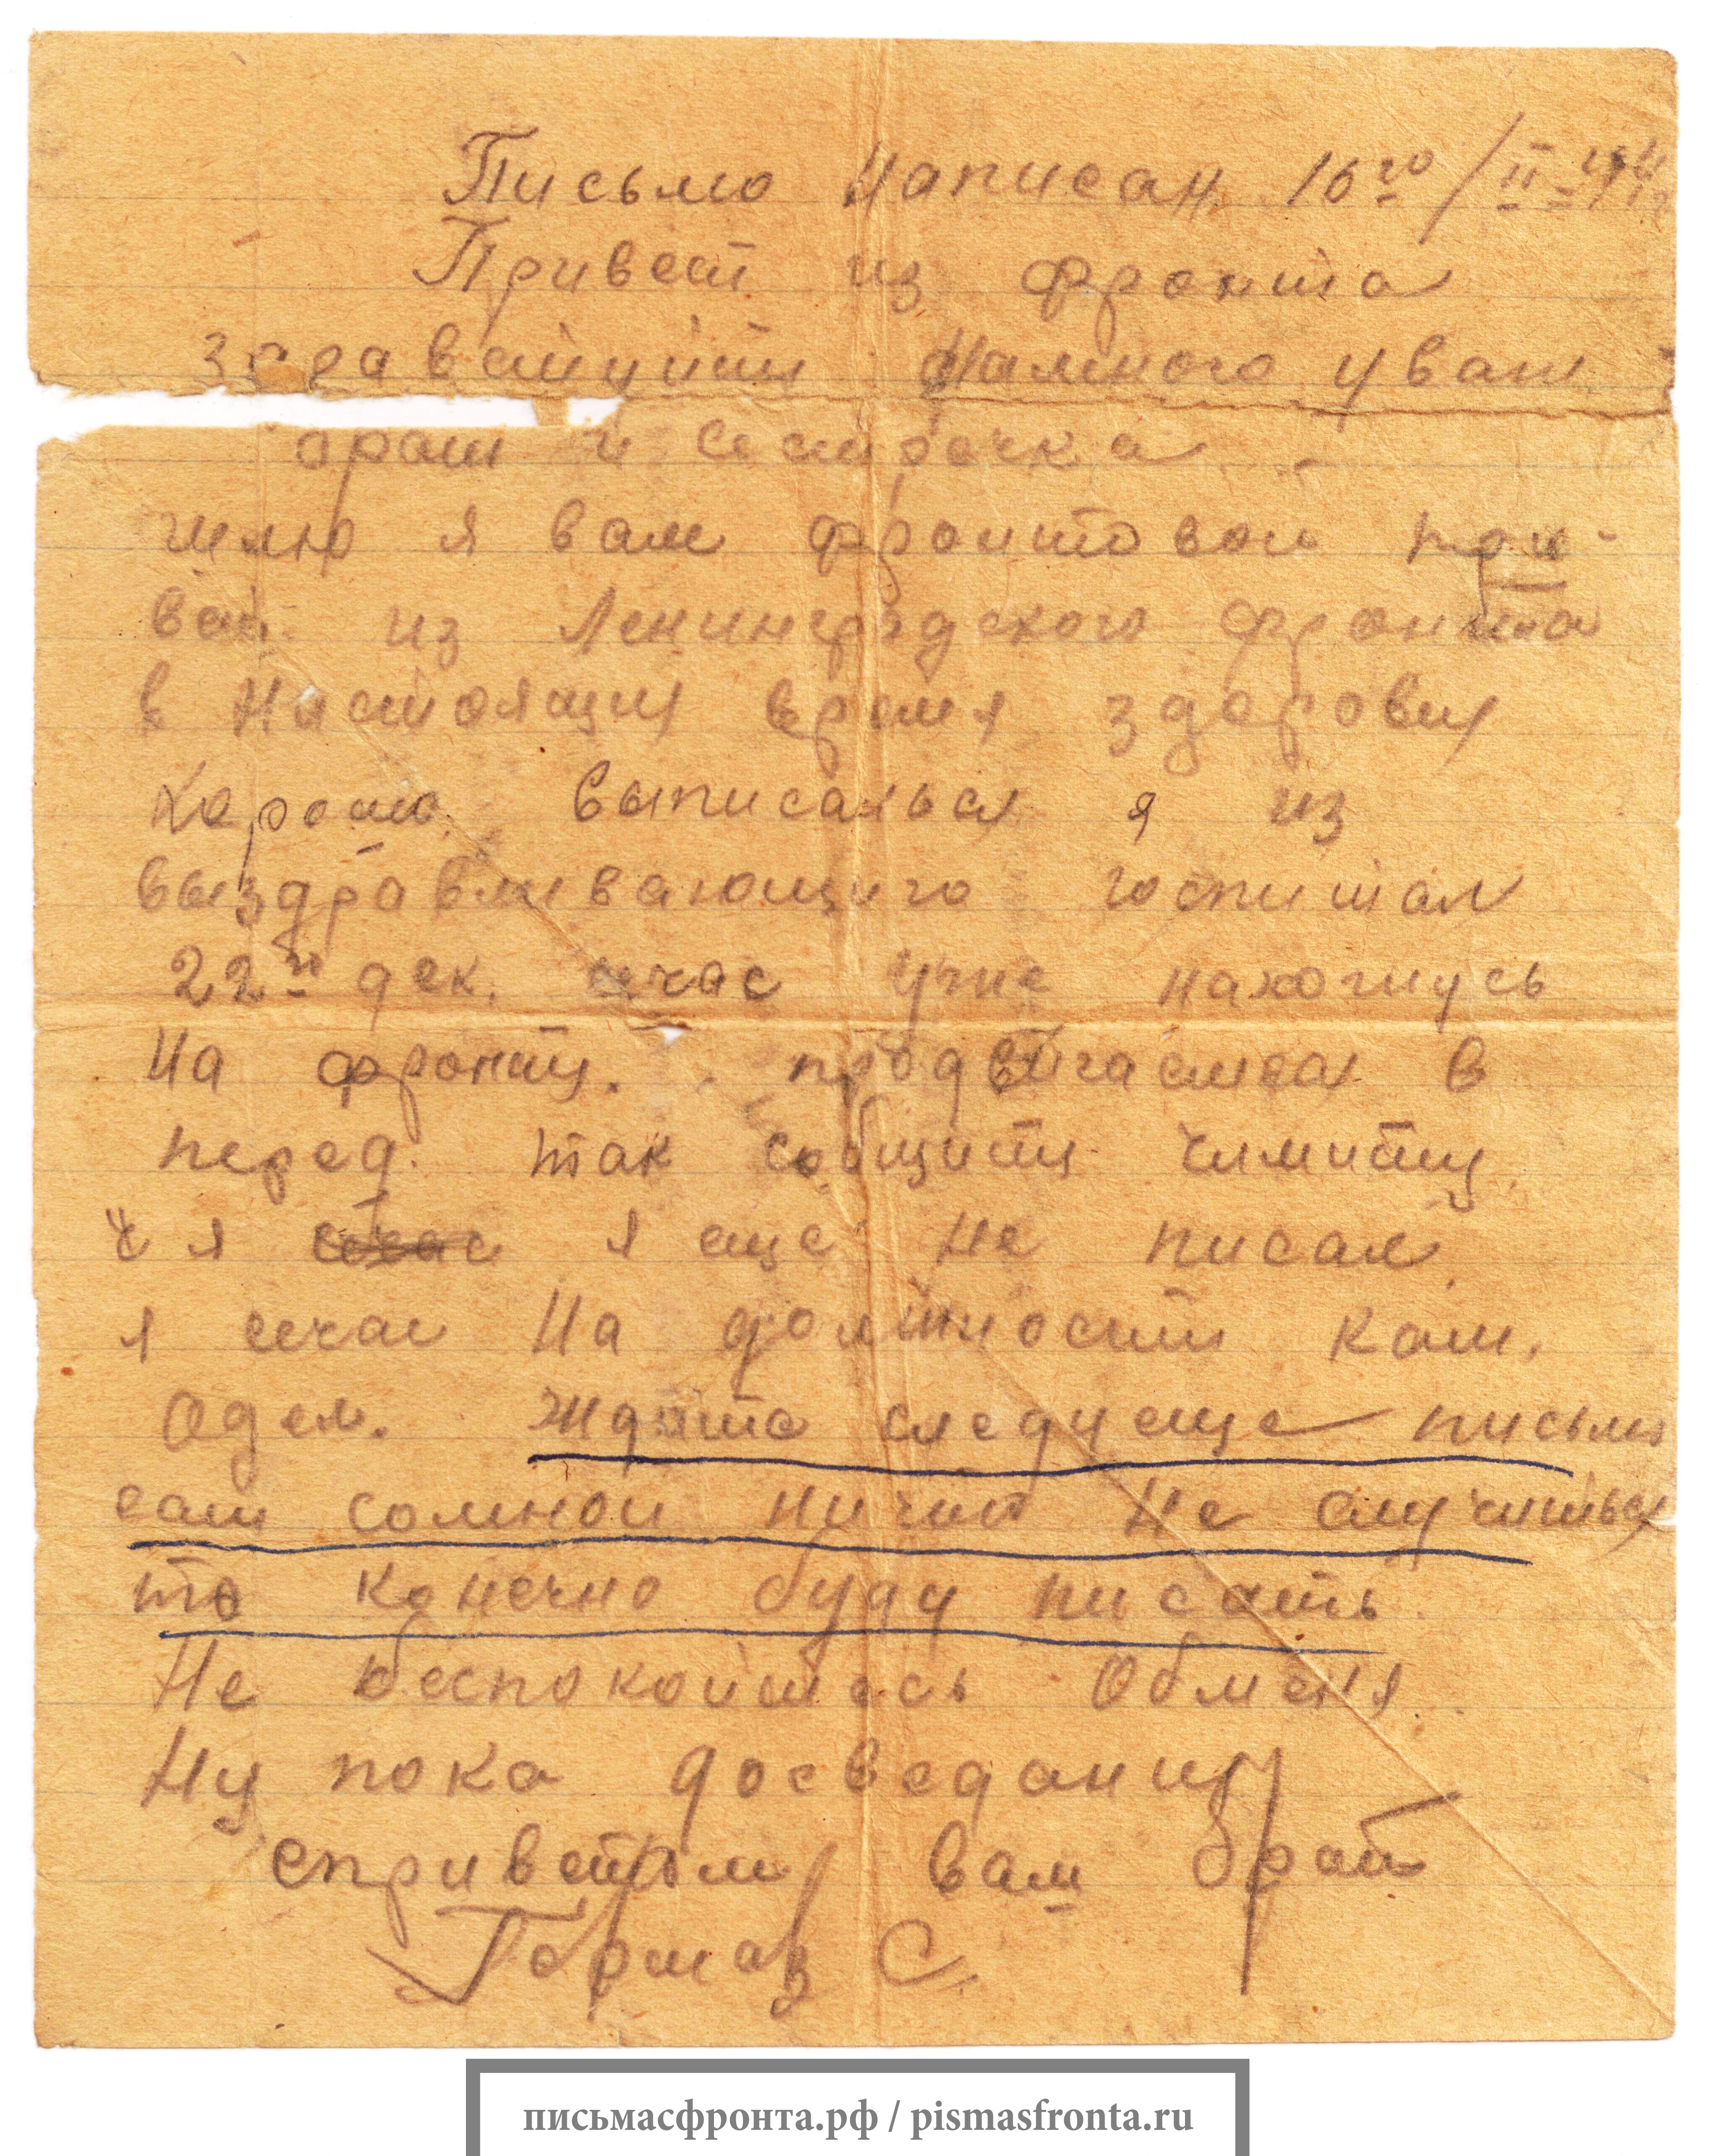 Письмо написан 16го/II-194
Привет из фронта
здравствуйти уваж
брат и сестрочка
шлю я вам фронтовой при-
вет из Ленинградского фронта
в настоящи время здоровия
хорошо. выписалься я из
выздравливающиго госпитал
22го дек. счас уже нахожусь
на фронти. продвигаемся в
перед. так собщити
я я еще не писал.
я счас на должности ком.
одел. Ждите следуеще письмо
если сомной ничиго не случиться
то конечно буду писать.
Не беспокойтесь обменя.
Ну пока досведания
сприветом вам брат
С.
письмасфронта.рф / pismasfronta.ru